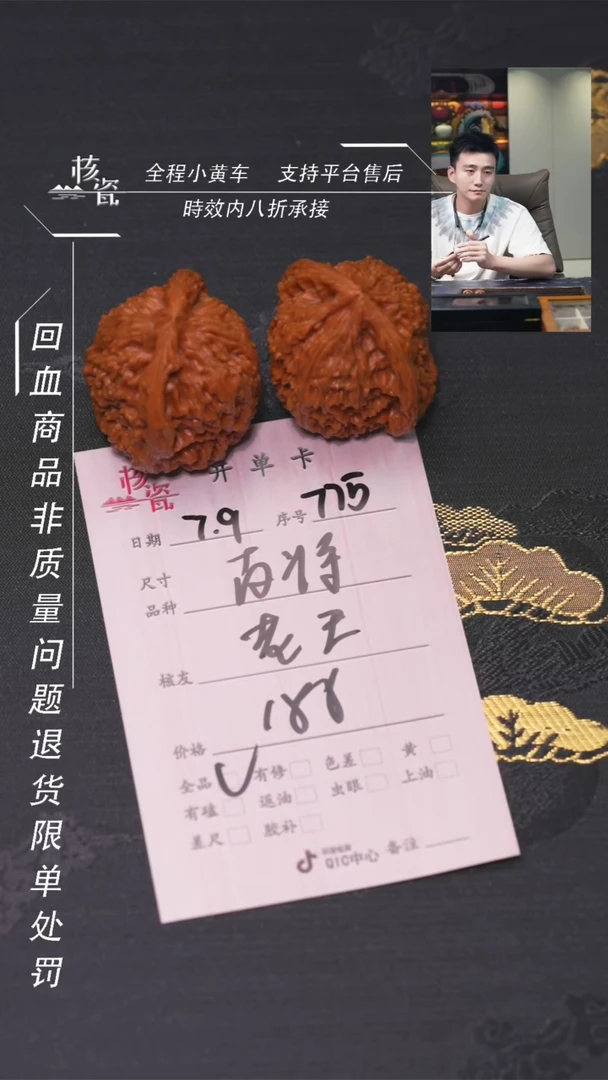 核瓷
全程小黄车 支持平台售后
時效内八折承接
回血商品非质量问题退货限单处罚
核瓷
开单卡
日期 7.9 序号 775
尺寸
品种
核友
价格 188
全品 有修 色差 黄
有磕 返油 虫眼 上油
差尺 胶补
QIC中心 备注